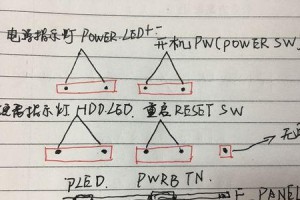 电源指示灯 POWER.LED+- 开机PW(POWER SW
指示灯 HDD.LED. 重启 RESET SW
PLED. PWRB TN.
F_PANEL